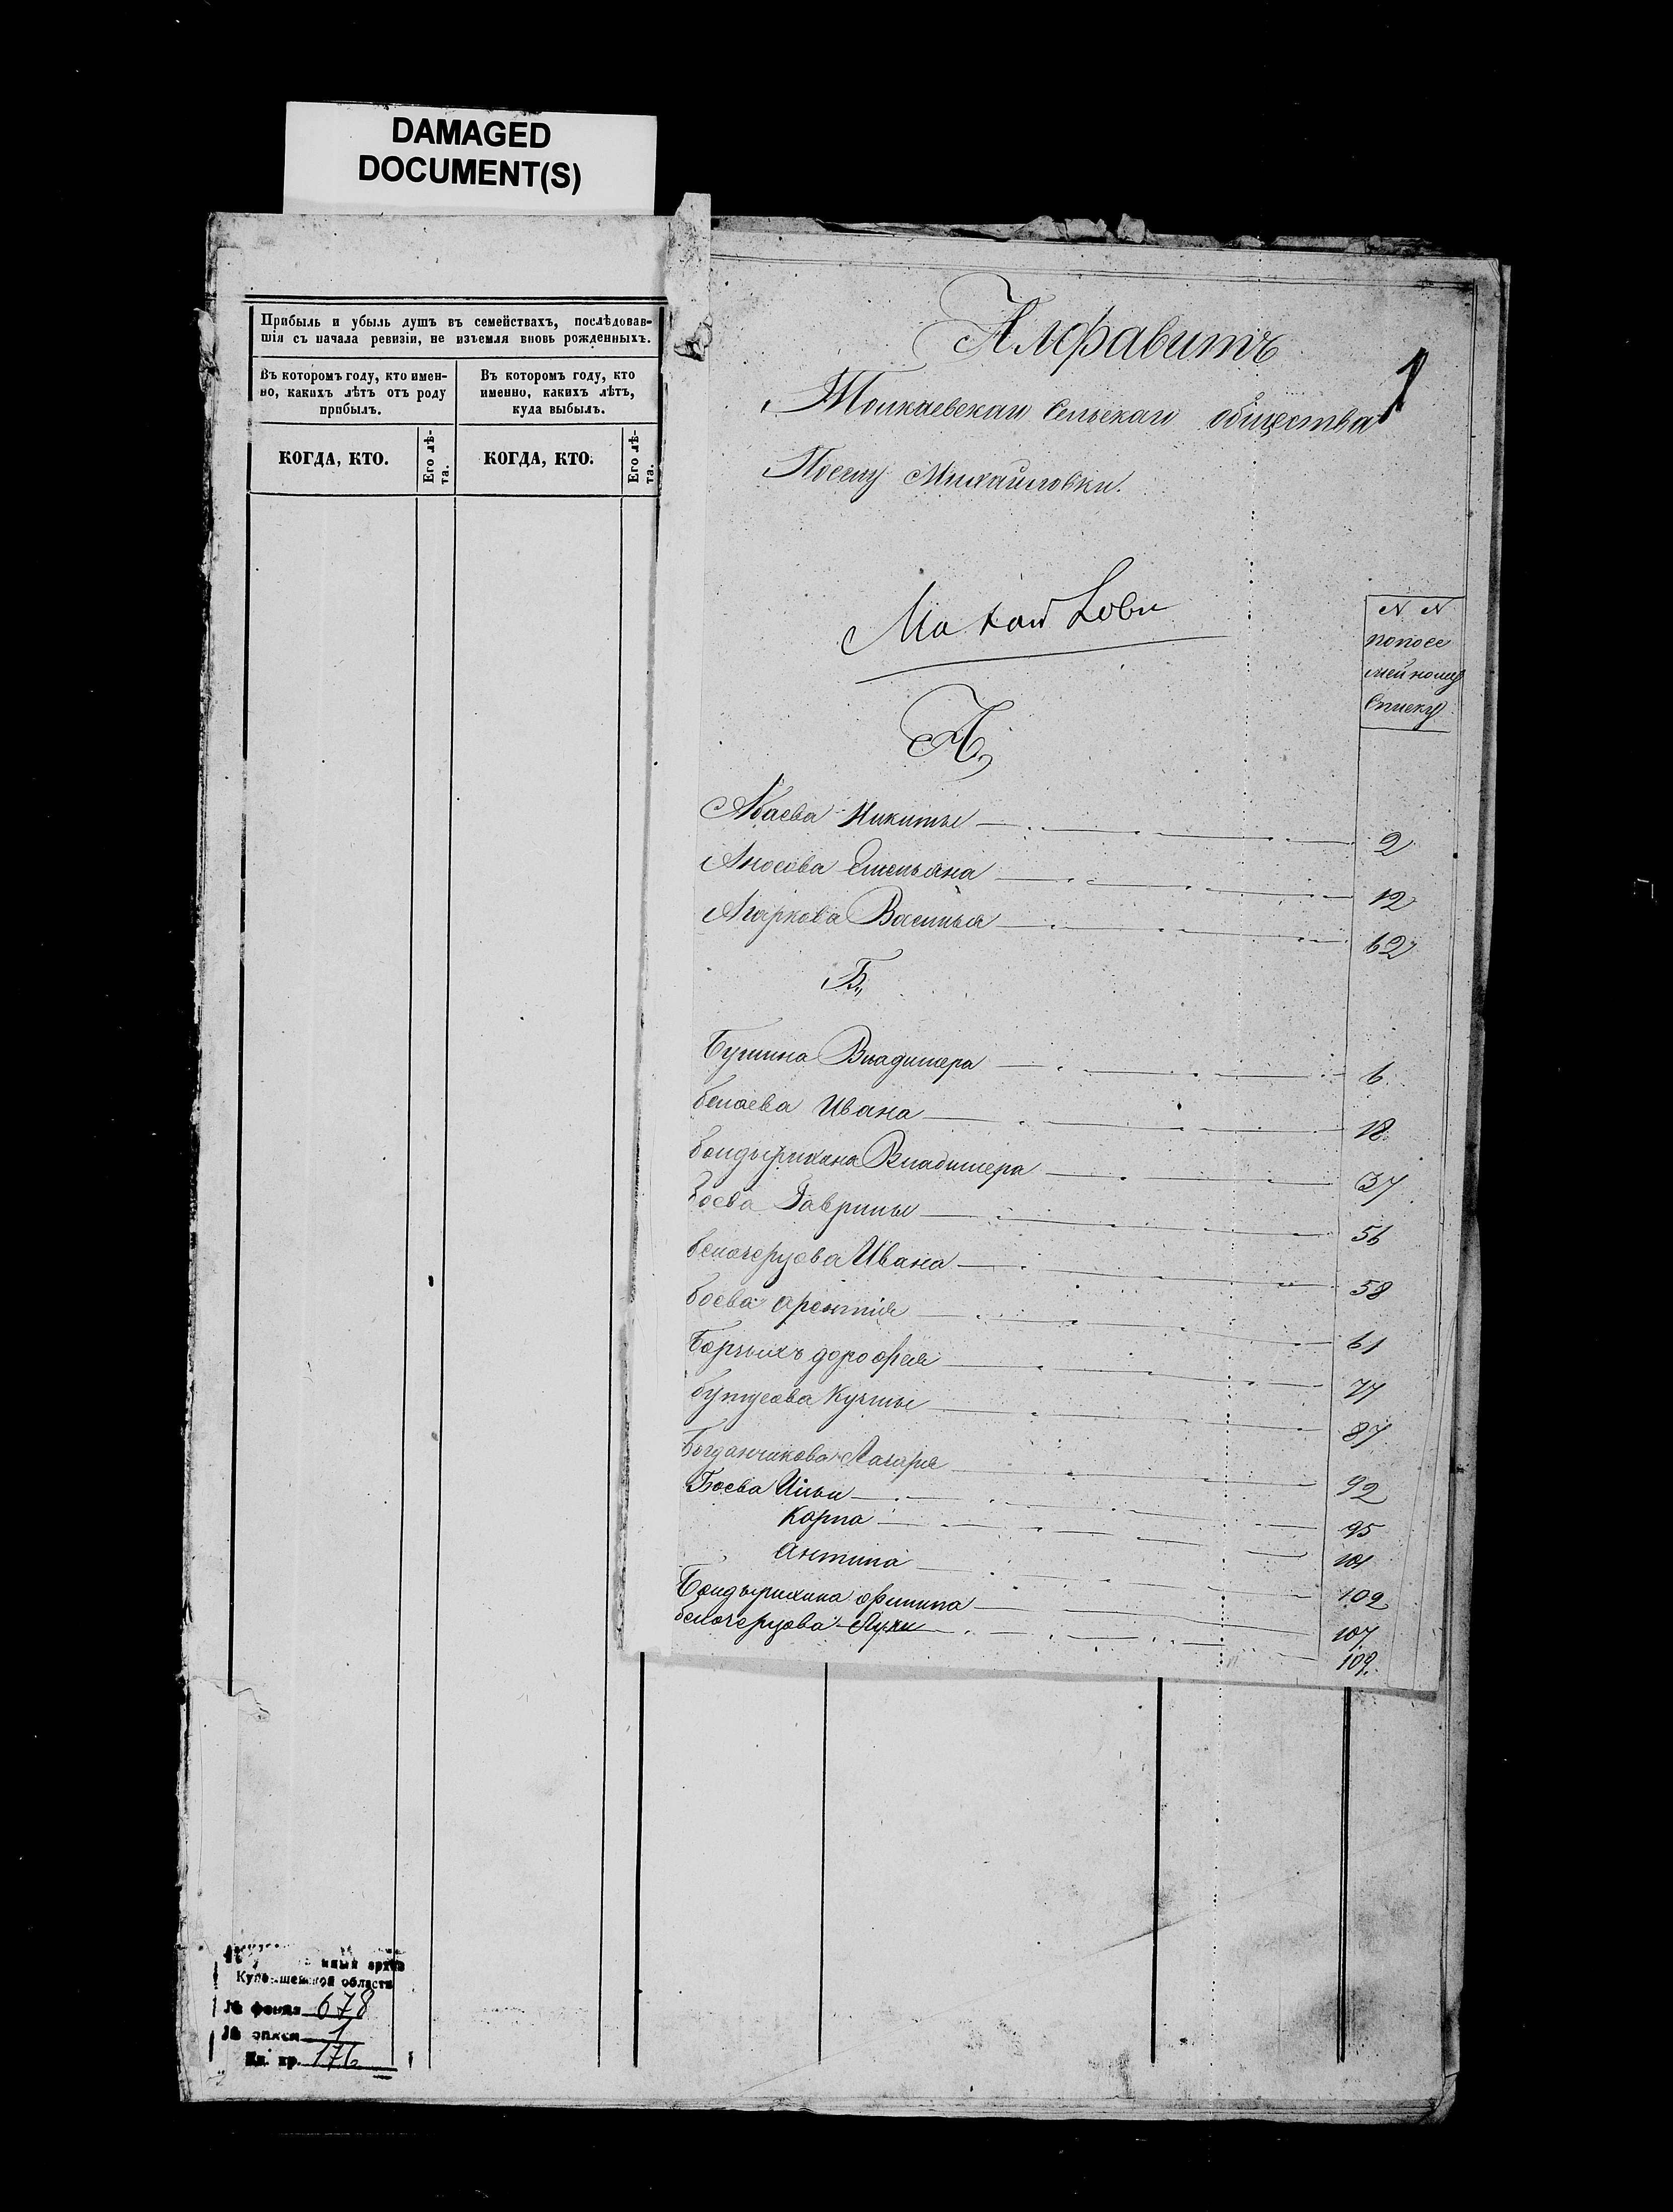 DAMAGED
DOCUMENT(S)
Прибыль и убыль душъ въ семействахъ, послѣдовав-
шія съ начала ревизіи, не изъемля вновь рожденныхъ.
Въ которомъ году, кто имен-
но, какихъ лѣтъ отъ роду
прибылъ.
Въ которомъ году, кто
именно, какихъ лѣтъ,
куда выбылъ.
КОГДА, КТО.
Его лѣ-
та.
КОГДА, КТО.
Его лѣ-
та.
Алфавитъ
1
Толкаевскаи Сельскаго общества
Поселу Михайловки.
N N
попосе
мейному
Списку
А,,
Абаева Никиты 2
Аносова Емельяна 12
Агаркова Василья 62
Б,,
Бушина Владимера 6
белаева Ивана 18
болдырихина Владимера 37
боева Гаврилы 56
белочерцова Ивана 58
боева арентія 61
Борзыхъ дорофея 77
бутусова Кузмы 87
Богданчикова Лазаря 92
Боева Ильи 95
Карпа 101
антипа 102
Болдырихина филипа 107
белочерцова Луки 109.
архив
Куйбышевской области
№ фонда 678
№ описи 1
Ед. хр. 176